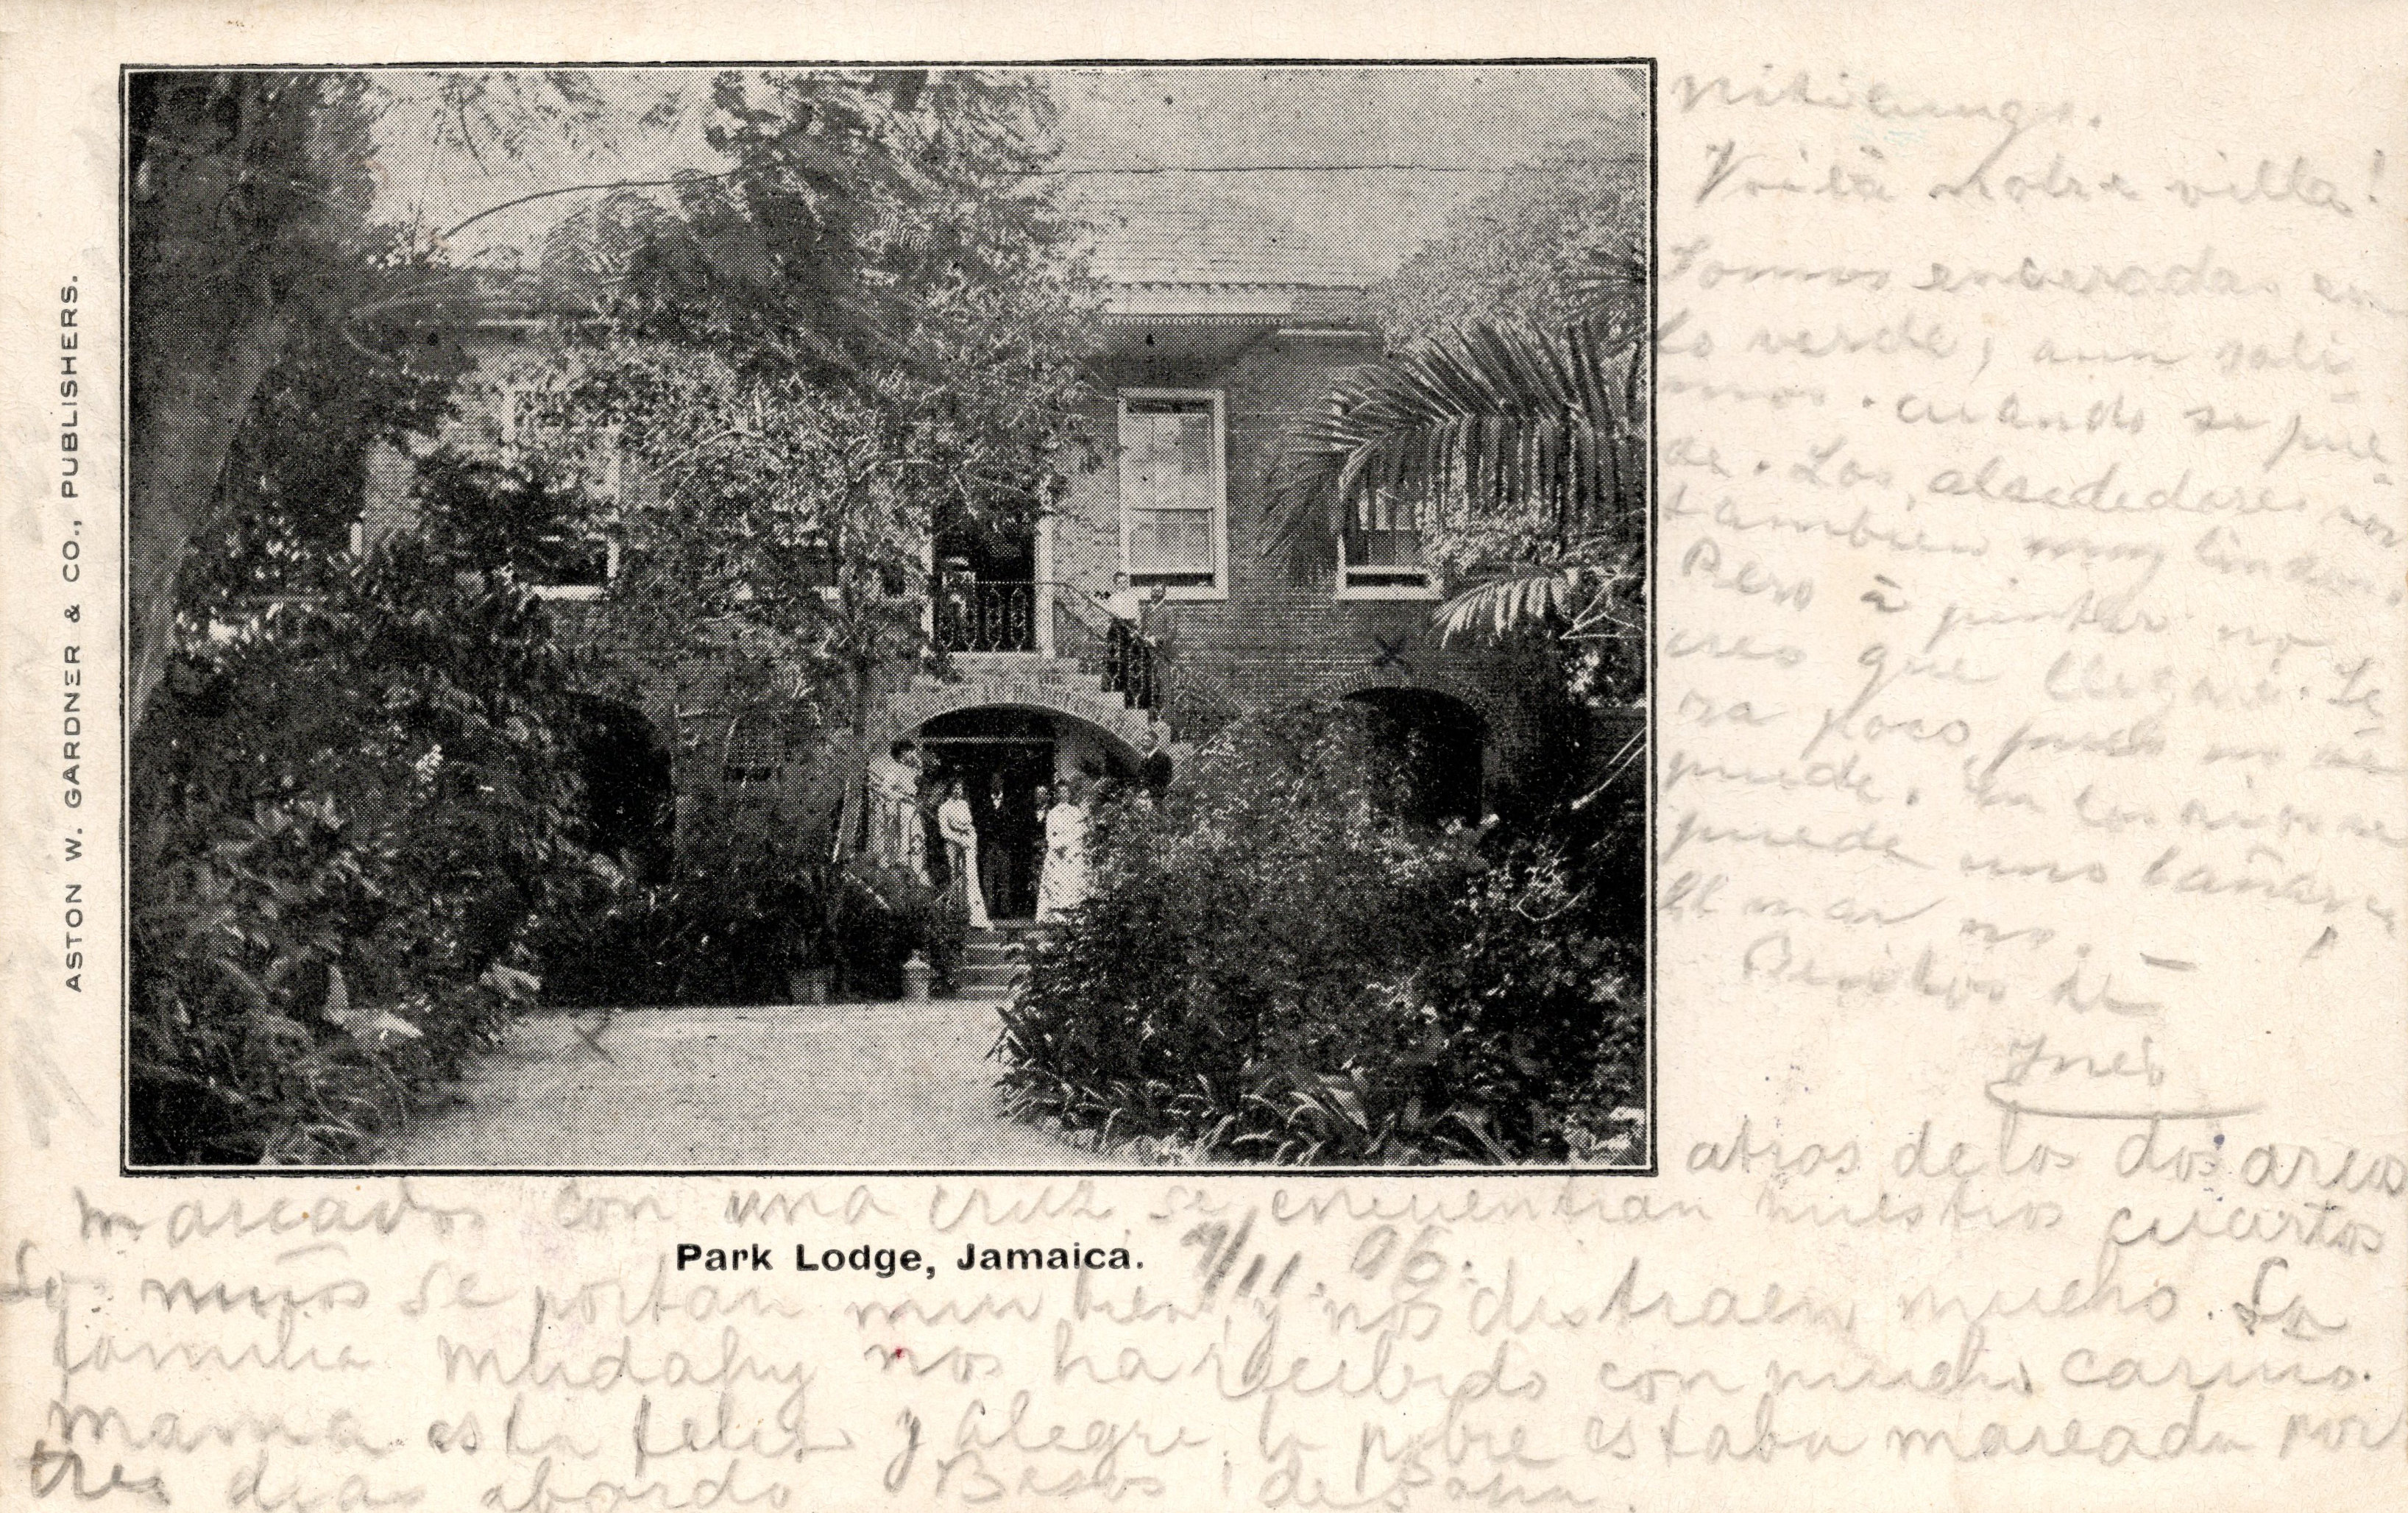 ASTON W. GARDNER & CO., PUBLISHERS.
Voilà notre villa!
Somos enceradas en
lo verde, aun sali
mos. cuando se pue-
de. Los alrededores son
tambien muy lindos.
Pero à pintar no
creo que llegaré. Se
rà poco pues no se
puede. En los rios se
puede uno bañar en
el mar no.
Besitos de
Ynés
atras de los dos arcos
marcados con una cruz se encuentran nuestros cuartos
Park Lodge, Jamaica. 7/11.06.
Los niños se portan muy bien y nos distraen mucho. La
familia nos ha recibido con mucho cariño.
mama esta feliz y alegre, la pobre estaba mareada por
tres dias abordo Besos de